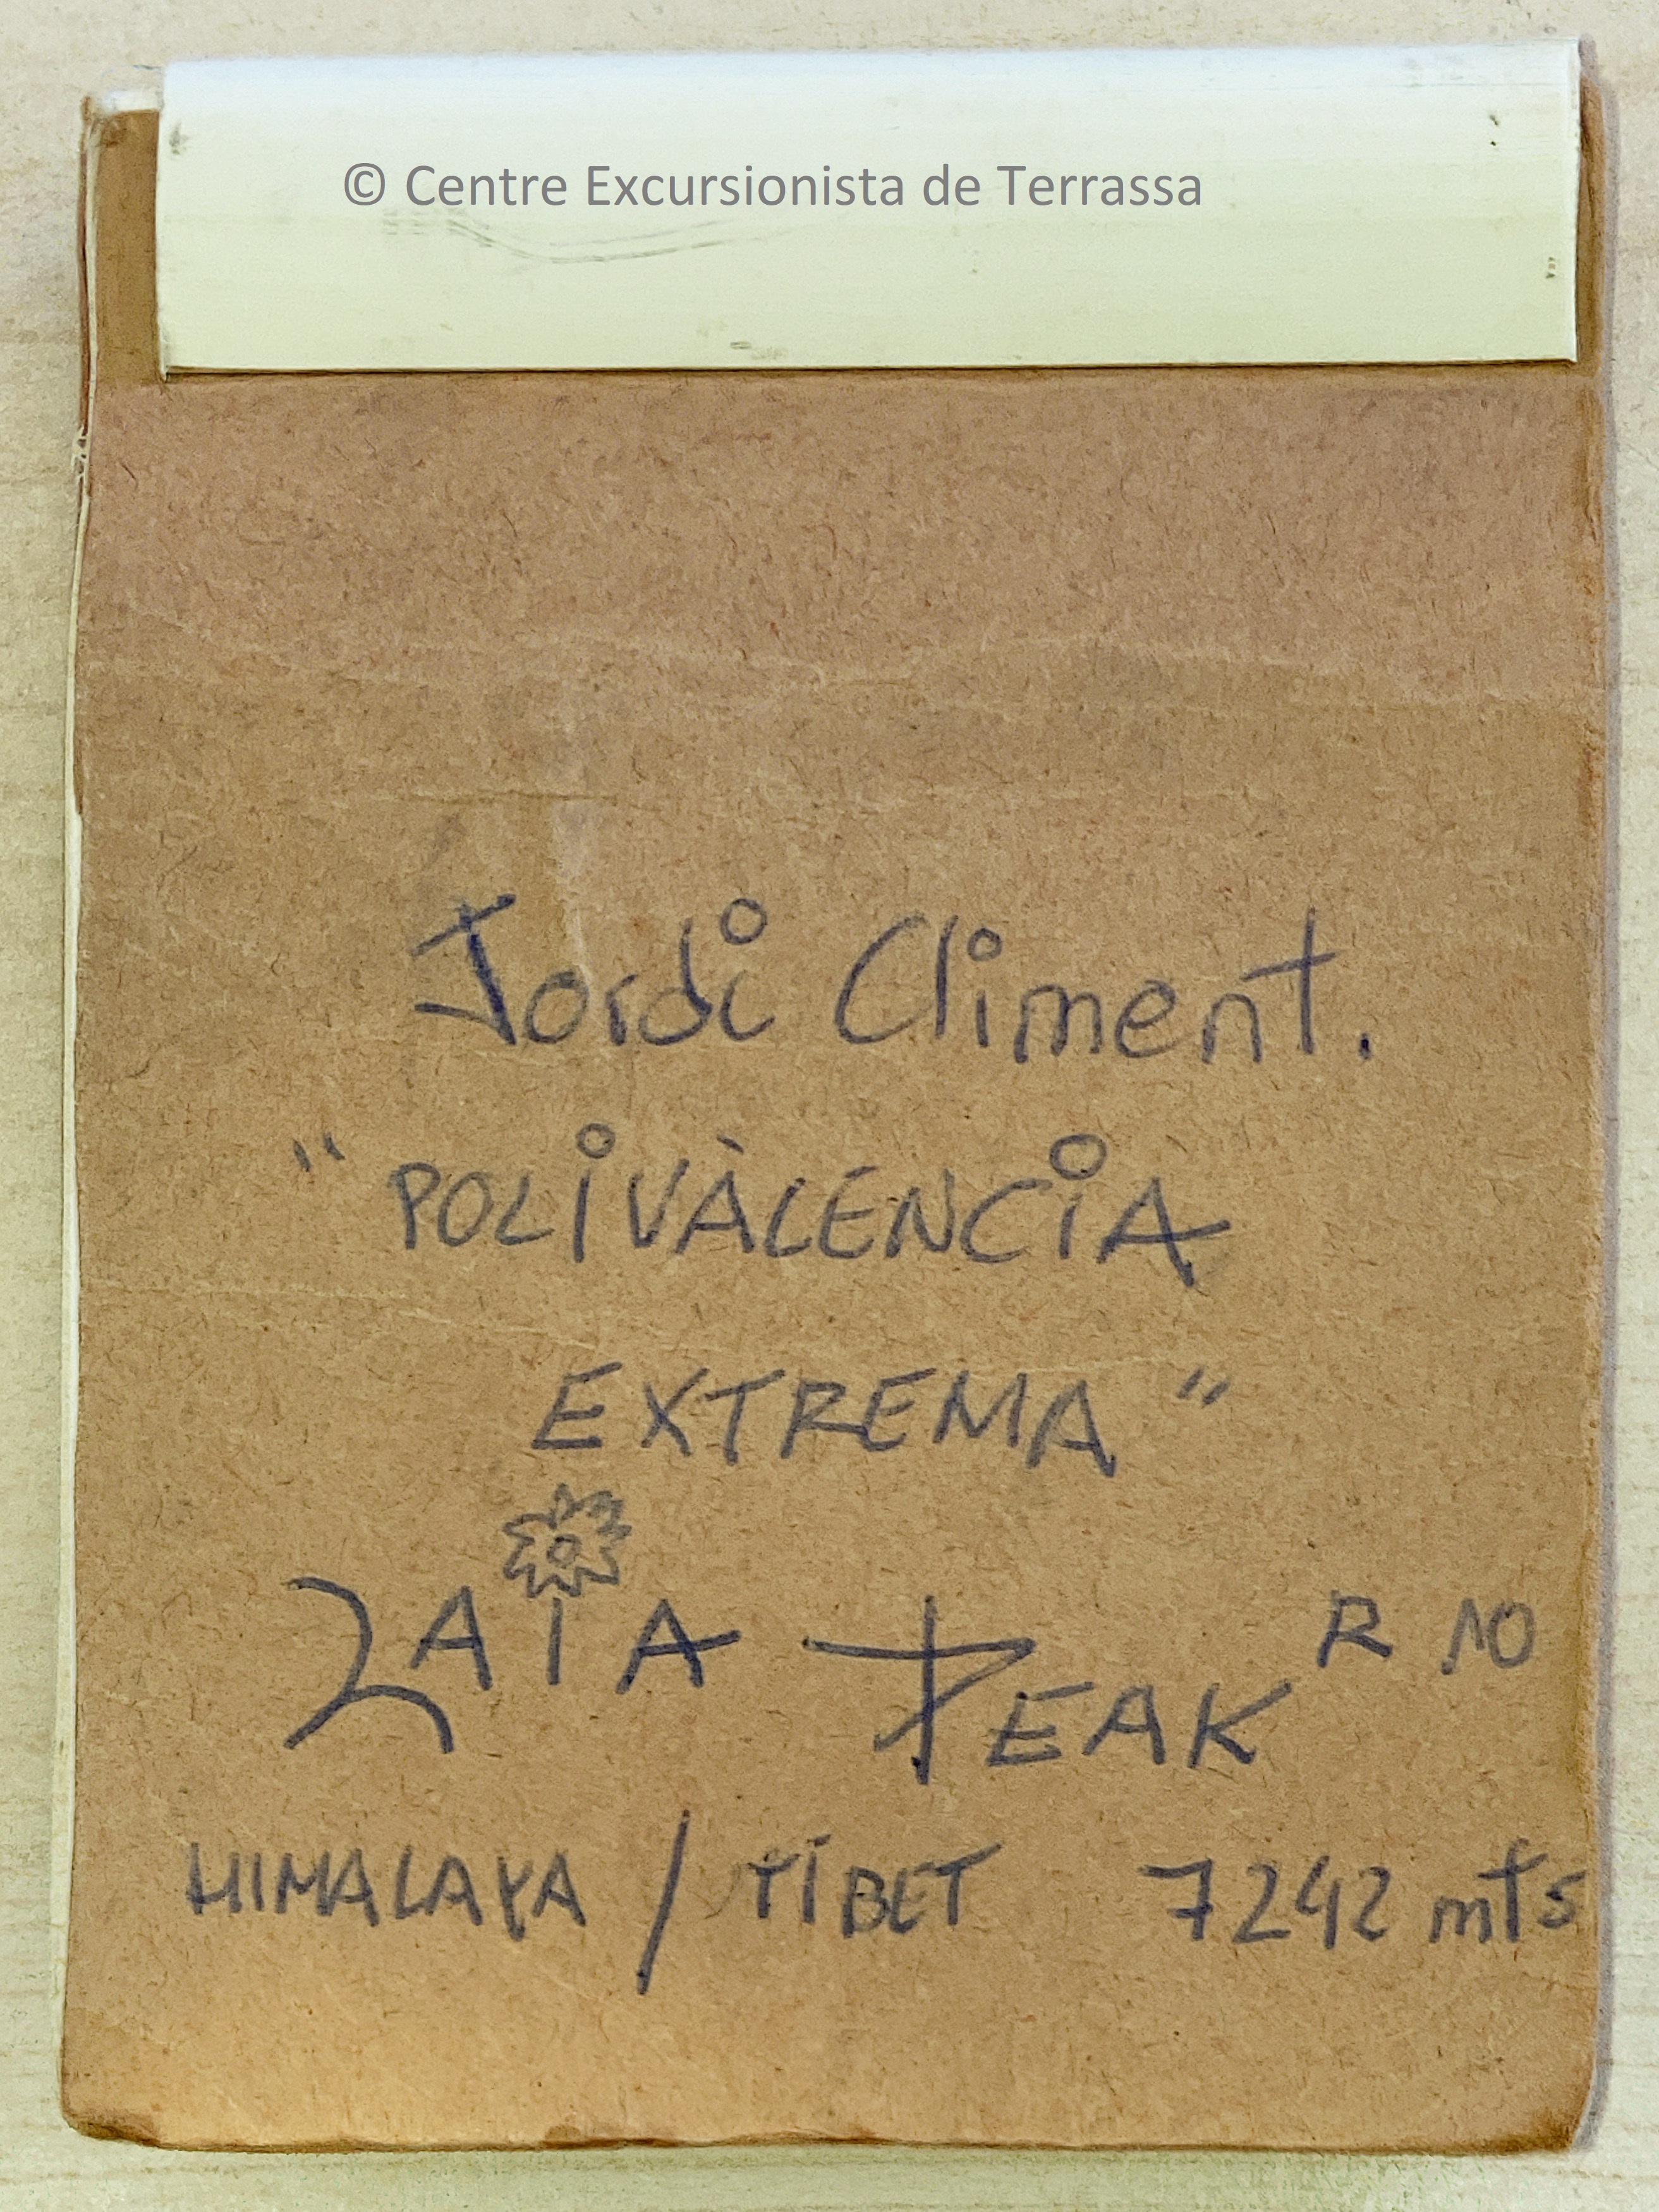 © Centre Excursionista de Terrassa
Jordi Climent.
"POLIVÀLENCIA
EXTREMA"
LAIA PEAK R 10
HIMALAYA / TIBET 7242 mts